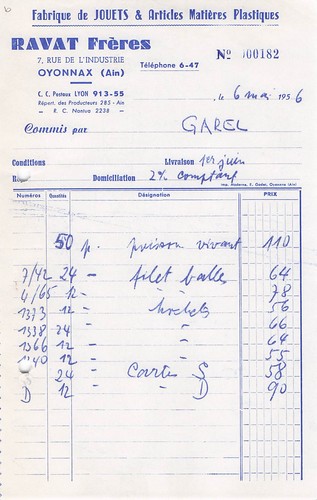 Fabrique de JOUETS & Articles Matières Plastiques
RAVAT Frères
7, RUE DE L'INDUSTRIE
OYONNAX (Ain)
Téléphone 6-47
Nº 000182
C. C. Postaux LYON 913-55
Répert. des Producteurs 285 - Ain
R. C. Nantua 2238
, le 6 mai 1956
Commis par GAREL
Conditions Livraison 1er juin
Domiciliation 2% comptant
Imp. Moderne, E. Gadel, Oyonnax (Ain)
Numéros Quantités Désignation PRIX
50 p. poisson vivant 110
7/42 24 - filet balles 64
4/65 12 - " 78
1373 12 - hochets 56
1338 24 - " 66
1366 12 - " 64
1140 12 - " 55
24 - Cartes S 58
D 12 - " D 90